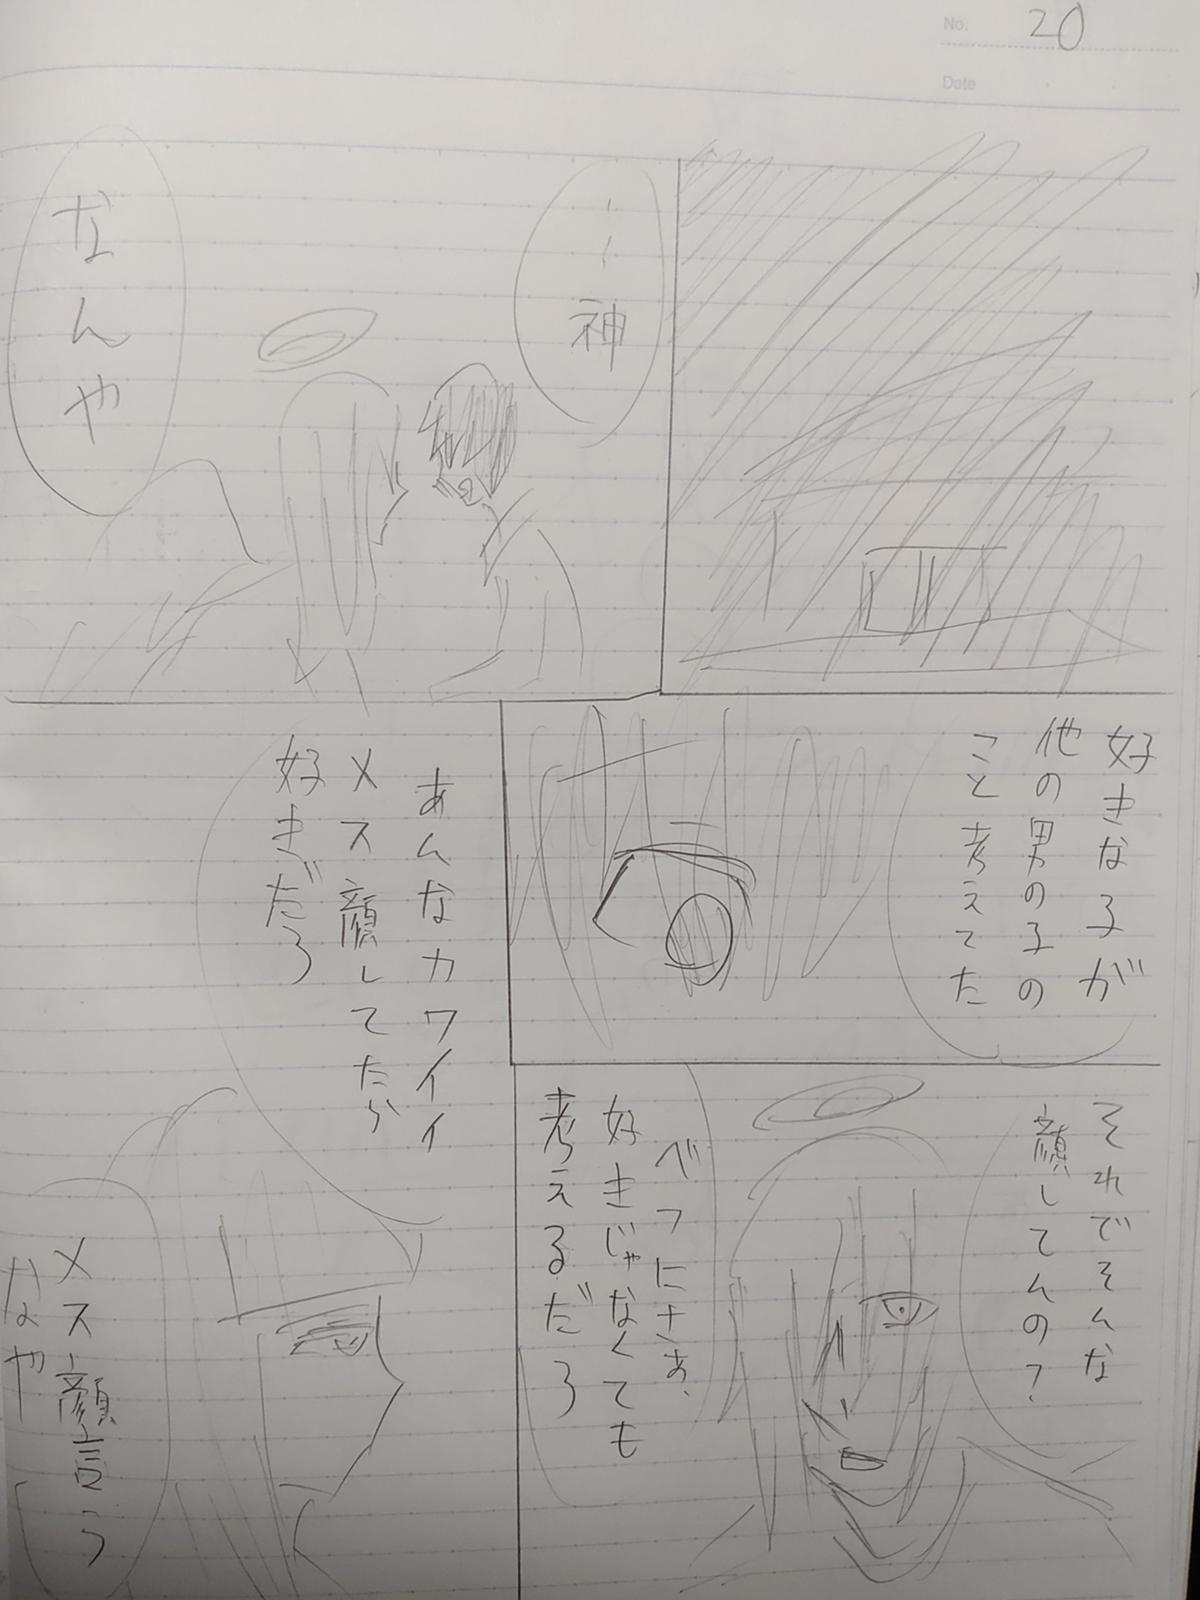 No. 20
Date
…神
なんや
好きな子が
他の男の子の
こと考えてた
それでそんな
顔してんの?
べつにさぁ、
好きじゃなくても
考えるだろ
あんなカワイイ
メス顔してたら
好きだろ
メス顔言う
なや